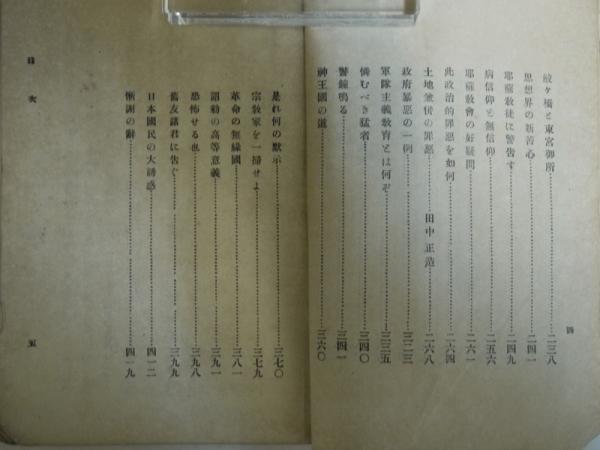 鮫ケ橋と東宮御所……二三八
思想界の新苦心……二四一
耶蘇敎徒に警吿す……二四九
病信仰と無信仰……二五六
耶蘇敎會の好疑問……二六一
此政治的罪惡を如何……二六四
土地兼併の罪惡……田中正造……二六八
政府暴惡の一例……三二三
軍隊主義敎育とは何ぞ……三三五
憐むべき猛者……三四〇
警鐘鳴る……三四一
神王國の道……三六〇
四
是れ何の默示……三七〇
宗敎家を一掃せよ……三七九
革命の無緣國……三八一
詔勅の高等意義……三九一
恐怖せる也……三九八
舊友諸君に吿ぐ……三九九
日本國民の大誘惑……四一二
慚謝の辭……四一九
目次
五